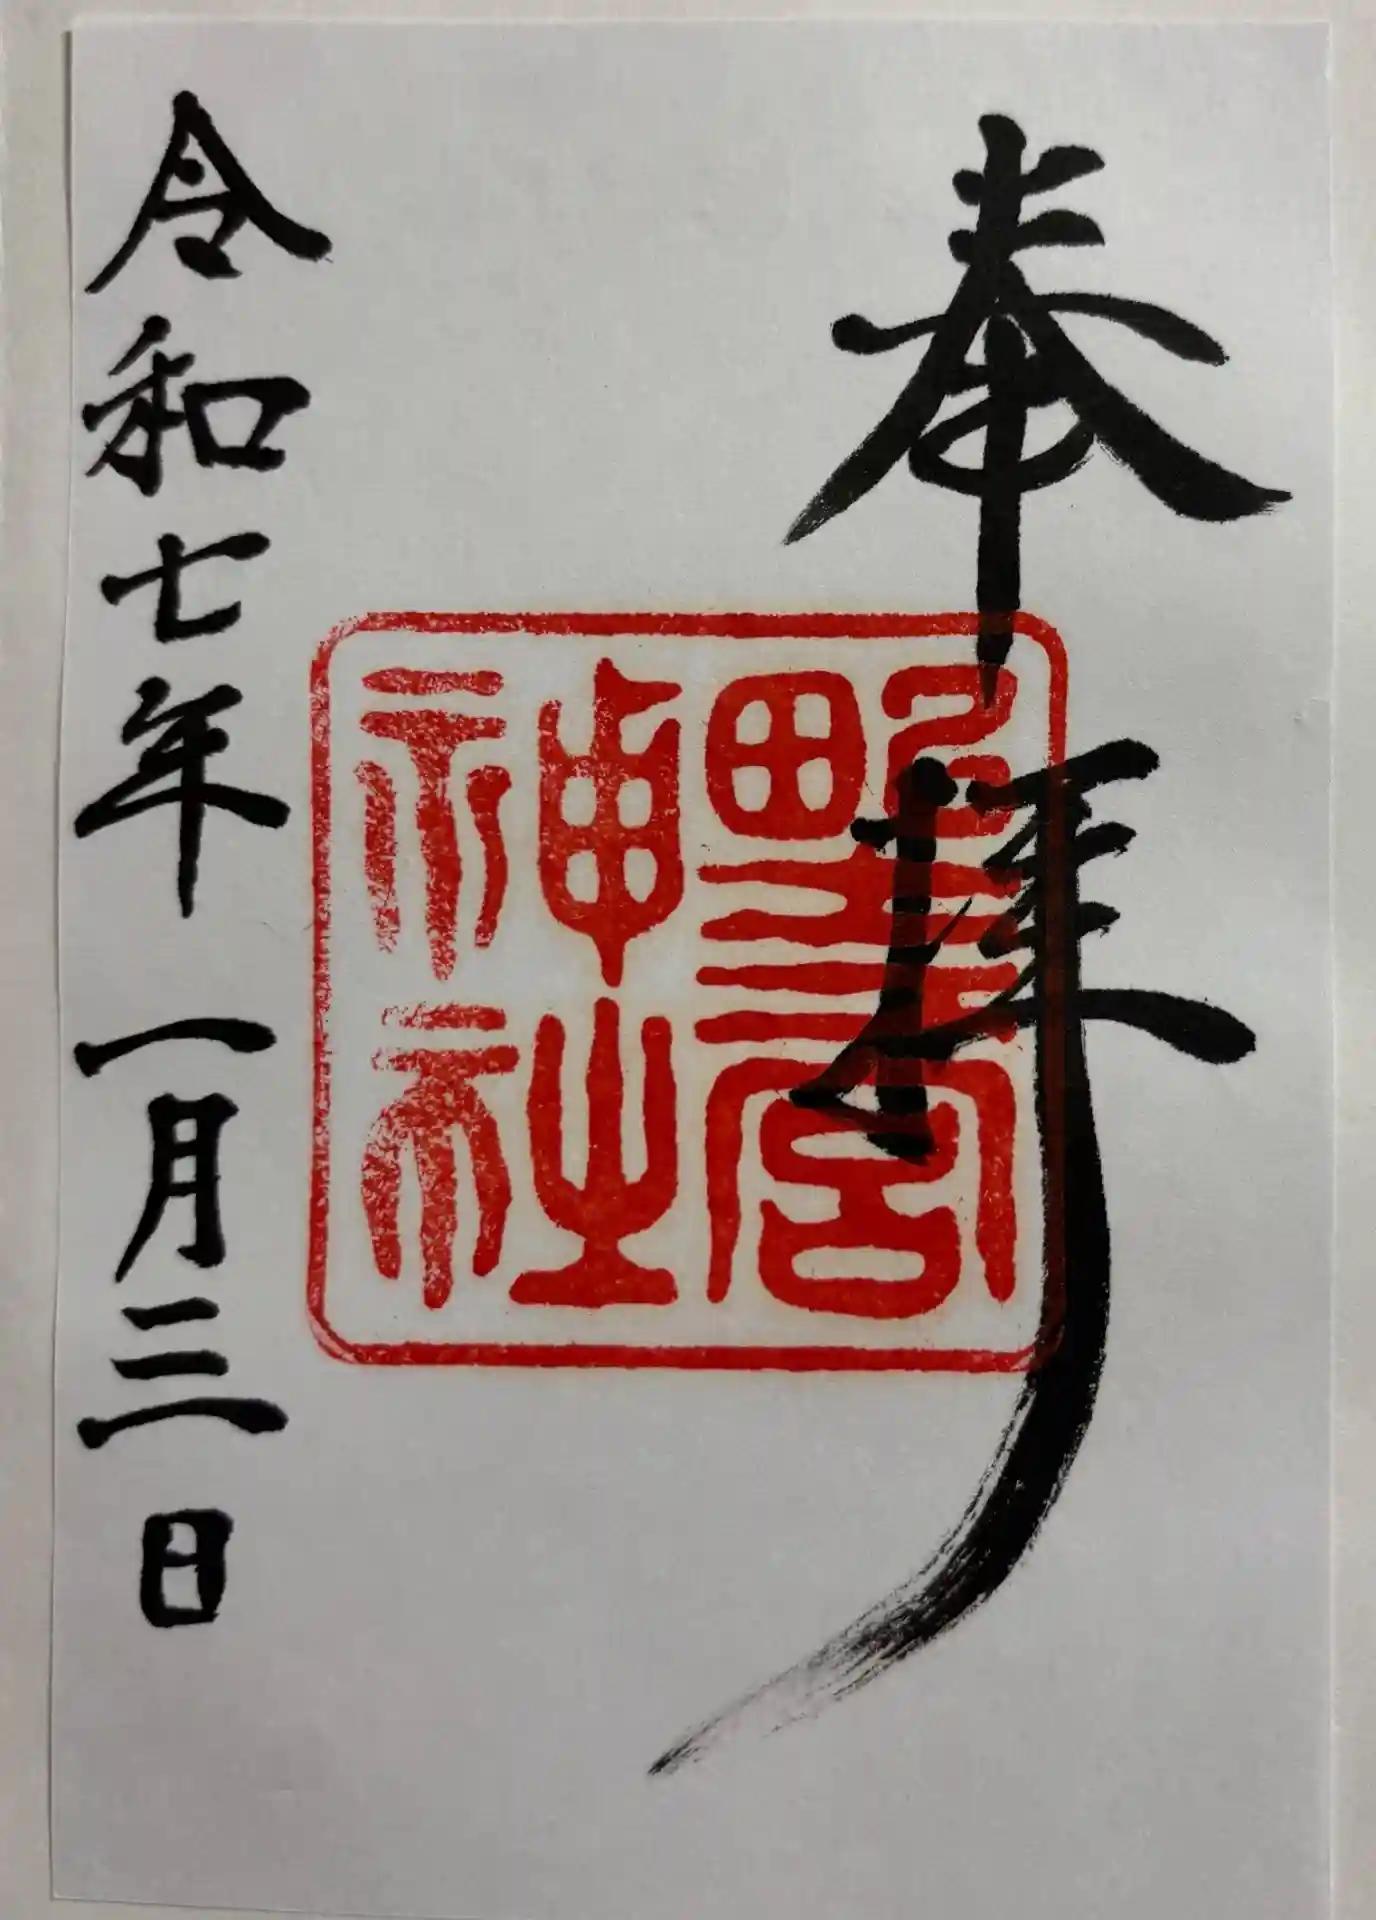 奉拝
野宮
神社
令和七年一月三日